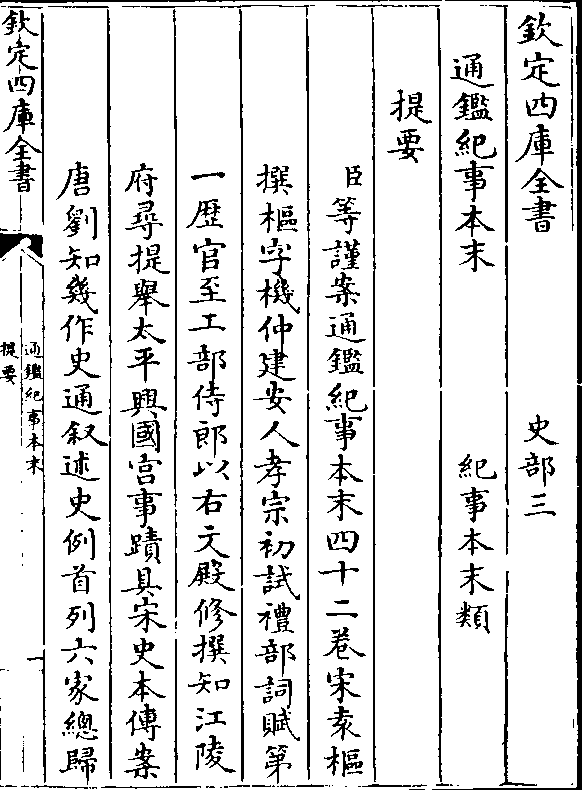 欽定四庫全書 史部三
通鑑紀事本末 紀事本末類
提要
臣等謹案通鑑紀事本末四十二卷宋袁樞
撰樞字機仲建安人孝宗初試禮部詞賦第
一歴官至工部侍郎以右文殿修撰知江陵
府尋提舉太平興國宫事蹟具宋史本傳案
唐劉知幾作史通叙述史例首列六家總歸
欽定四庫全書
通鑑紀事本末
提要
一